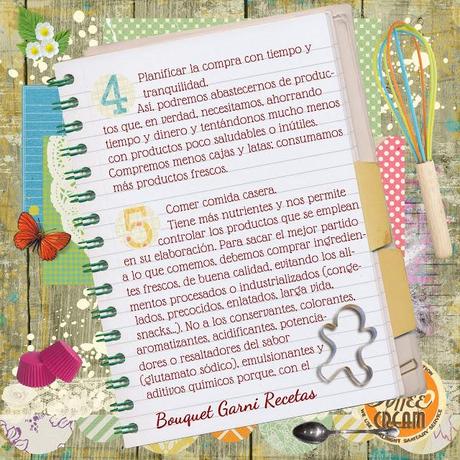 4
Planificar la compra con tiempo y
tranquilidad.
Así, podremos abastecernos de produc-
tos que, en verdad, necesitamos, ahorrando
tiempo y dinero y tentándonos mucho menos
con productos poco saludables o inútiles.
Compremos menos cajas y latas; consumamos
más productos frescos.
5
Comer comida casera.
Tiene más nutrientes y nos permite
controlar los productos que se emplean
en su elaboración. Para sacar el mejor partido
a lo que comemos, debemos comprar ingredien-
tes frescos, de buena calidad, evitando los ali-
mentos procesados o industrializados (conge-
lados, precocidos, enlatados, larga vida,
snacks...). No a los conservantes, colorantes,
aromatizantes, acidificantes, potencia-
dores o resaltadores del sabor
(glutamato sódico), emulsionantes y
aditivos químicos porque, con el
Bouquet Garni Recetas
CREAM